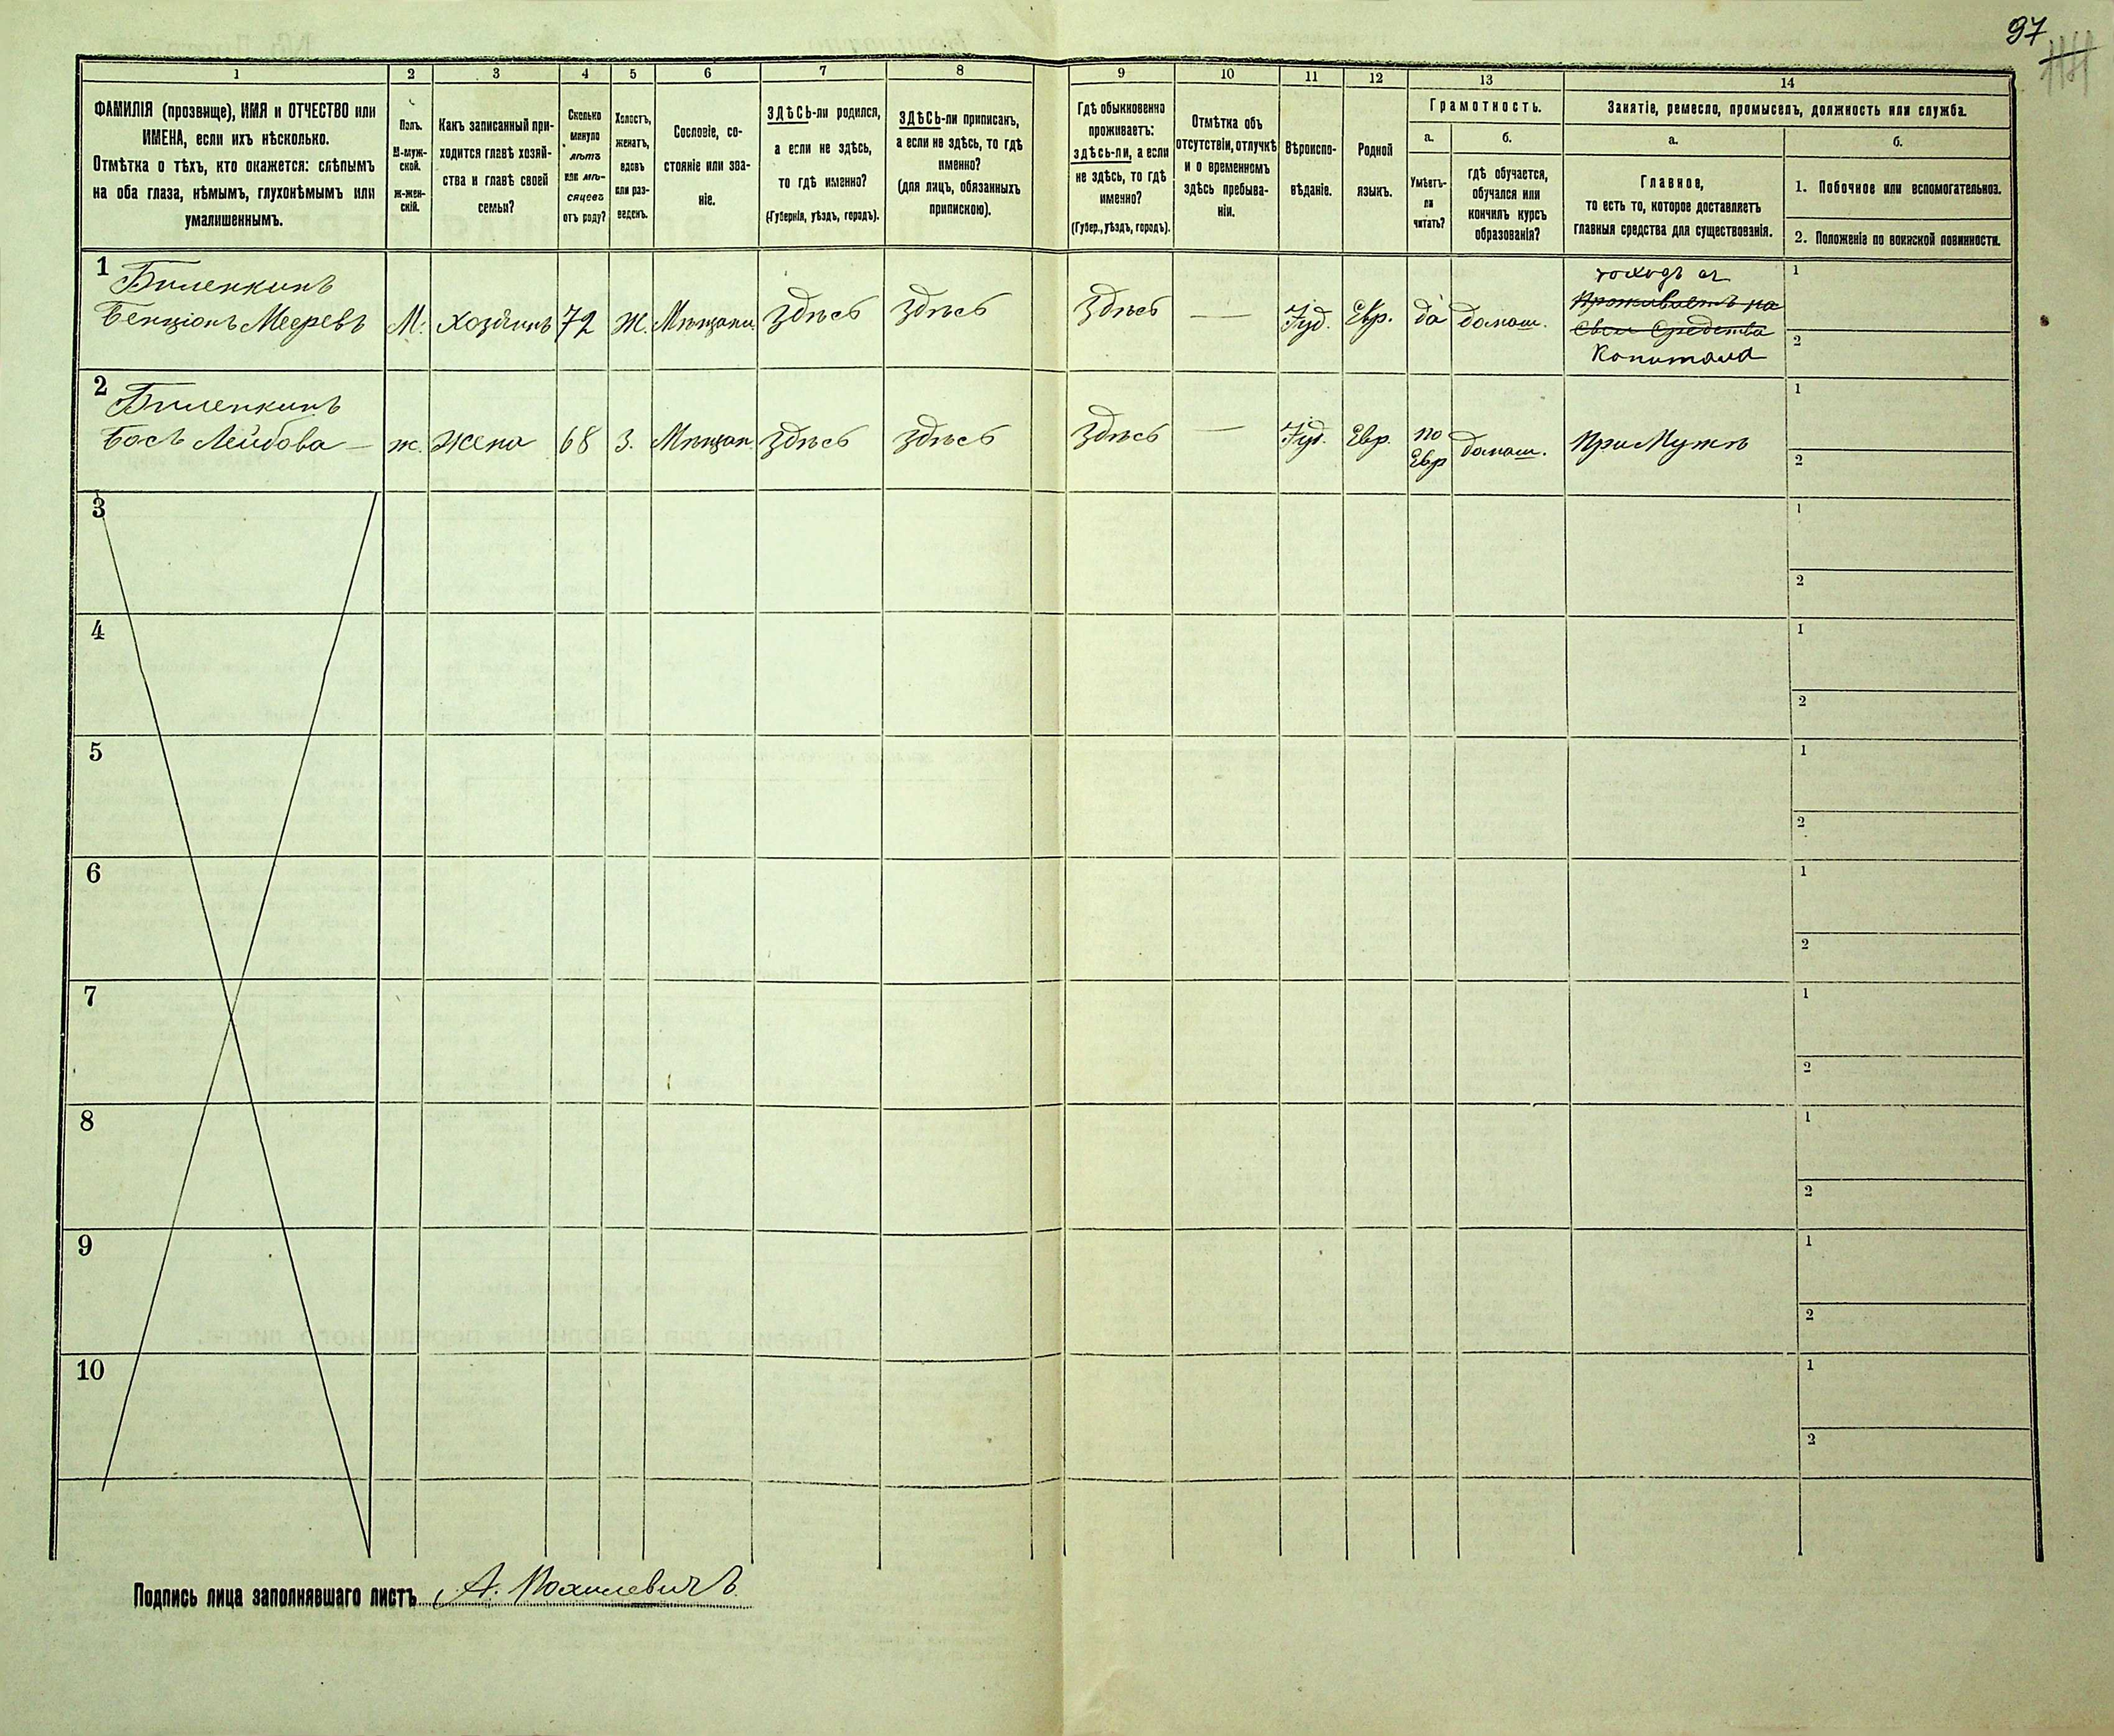 97
1 2 3 4 5 6 7 8 9 10 11 12 13 14
ФАМИЛІЯ (прозвище), ИМЯ и ОТЧЕСТВО или
ИМЕНА, если ихъ нѣсколько.
Отмѣтка о тѣхъ, кто окажется: слѣпымъ
на оба глаза, нѣмымъ, глухонѣмымъ или
умалишеннымъ.
Полъ.
М-муж-
ской.
Ж-жен-
скій.
Какъ записанный при-
ходится главѣ хозяй-
ства и главѣ своей
семьи?
Сколько
минуло
лѣтъ
или мѣ-
сяцевъ
отъ роду?
Холостъ,
женатъ,
вдовъ
или раз-
веденъ.
Сословіе, со-
стояніе или зва-
ніе.
ЗДѢСЬ-ли родился,
а если не здѣсь,
то гдѣ именно?
(Губернія, уѣздъ, городъ).
ЗДѢСЬ-ли приписанъ,
а если не здѣсь, то гдѣ
именно?
(для лицъ, обязанныхъ
припискою).
Гдѣ обыкновенно
проживаетъ:
здѣсь-ли, а если
не здѣсь, то гдѣ
именно?
(Губер., уѣздъ, городъ).
Отмѣтка объ
отсутствіи, отлучкѣ
и о временномъ
здѣсь пребыва-
ніи.
Вѣроиспо-
вѣданіе.
Родной
языкъ.
Грамотность.
а.
Умѣетъ-
ли
читать?
б.
гдѣ обучается,
обучался или
кончилъ курсъ
образованія?
Занятіе, ремесло, промыселъ, должность или служба.
а.
Главное,
то есть то, которое доставляетъ
главныя средства для существованія.
б.
1. Побочное или вспомогательное.
2. Положеніе по воинской повинности.
1
Биленкинъ
Бенціонъ Мееревъ
М. Хозяинъ 72 Ж. Мѣщани. Здѣсь Здѣсь Здѣсь — Іуд. Евр. да домаш.
доходъ съ
Проживаетъ на
Свои Средства
Капитала
1
2
2
Биленкинъ
Бось Лейбова —
ж. Жена 68 З. Мѣщан Здѣсь Здѣсь Здѣсь — Іуд. Евр. по
Евр
домаш. При Мужѣ
1
2
3
1
2
4
1
2
5
1
2
6
1
2
7
1
2
8
1
2
9
1
2
10
1
2
Подпись лица заполнявшаго листъ А. Мохилевичъ